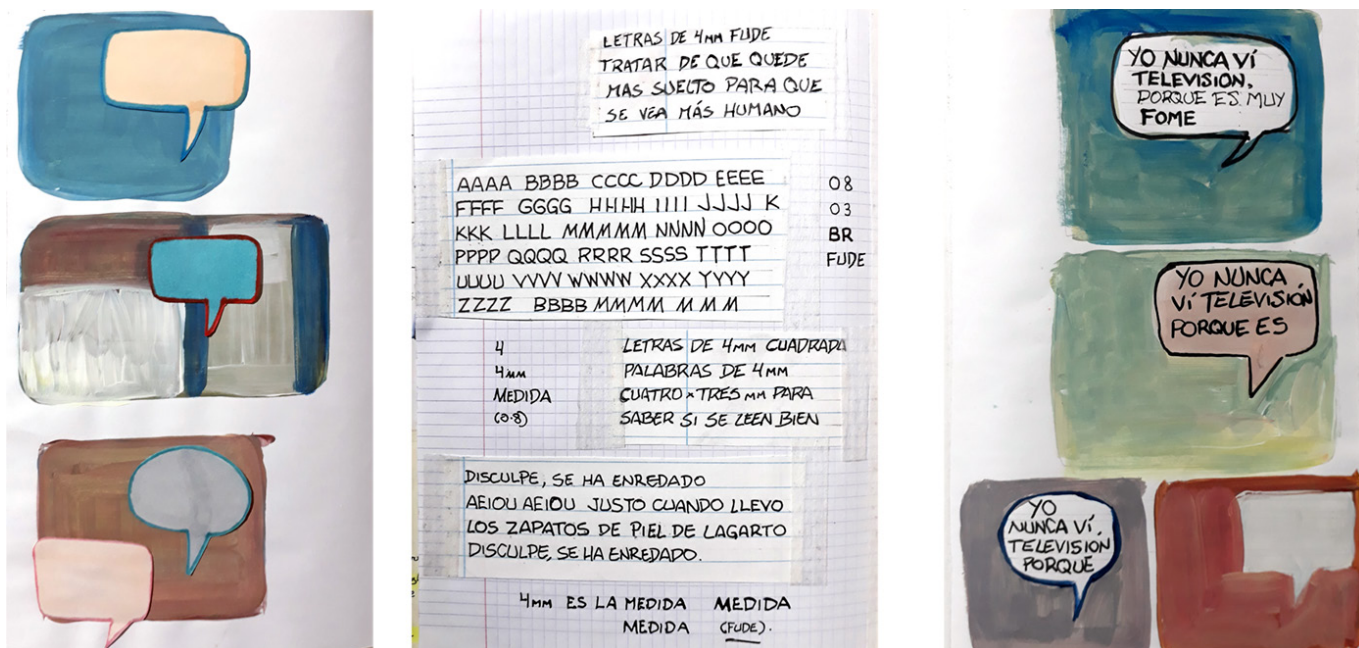 LETRAS DE 4MM FUDE
TRATAR DE QUE QUEDE
MAS SUELTO PARA QUE
SE VEA MÁS HUMANO
AAAA BBBB CCCC DDDD EEEE
FFFF GGGG HHHH IIII JJJJ K
KKK LLLL MMMMM NNNN OOOO
PPPP QQQQ RRRR SSSS TTTT
UUUU VVVV WWWW XXXX YYYY
ZZZZ BBBB MMMM M M M
08
03
BR
FUDE
4
4mm
MEDIDA
(0.8)
LETRAS DE 4MM CUADRADA
PALABRAS DE 4MM
CUATRO x TRES MM PARA
SABER SI SE LEEN BIEN
DISCULPE, SE HA ENREDADO
AEIOU AEIOU JUSTO CUANDO LLEVO
LOS ZAPATOS DE PIEL DE LAGARTO
DISCULPE, SE HA ENREDADO.
4MM ES LA MEDIDA MEDIDA
MEDIDA (FUDE).
YO NUNCA VÍ
TELEVISION,
PORQUE ES MUY
FOME
YO NUNCA
VÍ TELEVISIÓN
PORQUE ES
YO
NUNCA VÍ,
TELEVISION
PORQUE